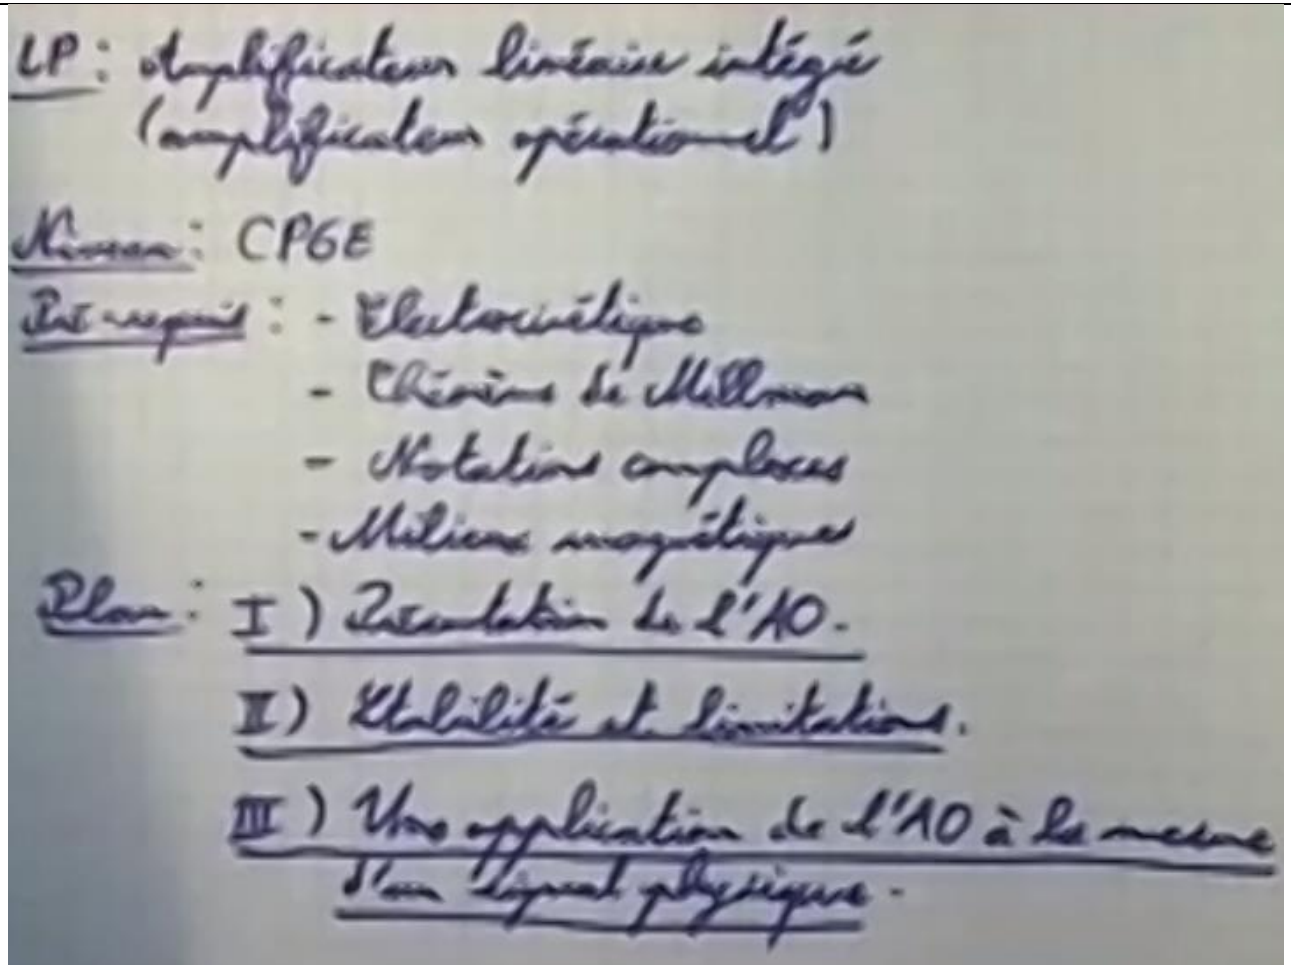 LP : Amplificateur linéaire intégré
(amplificateur opérationnel)
Niveau : CPGE
Pré-requis : - Electrocinétique
- Théorème de Millman
- Notations complexes
- Milieux magnétiques
Plan : I ) Présentation de l'AO.
II) Stabilité et limitations.
III ) Une application de l'AO à la mesure
d'un signal physique.